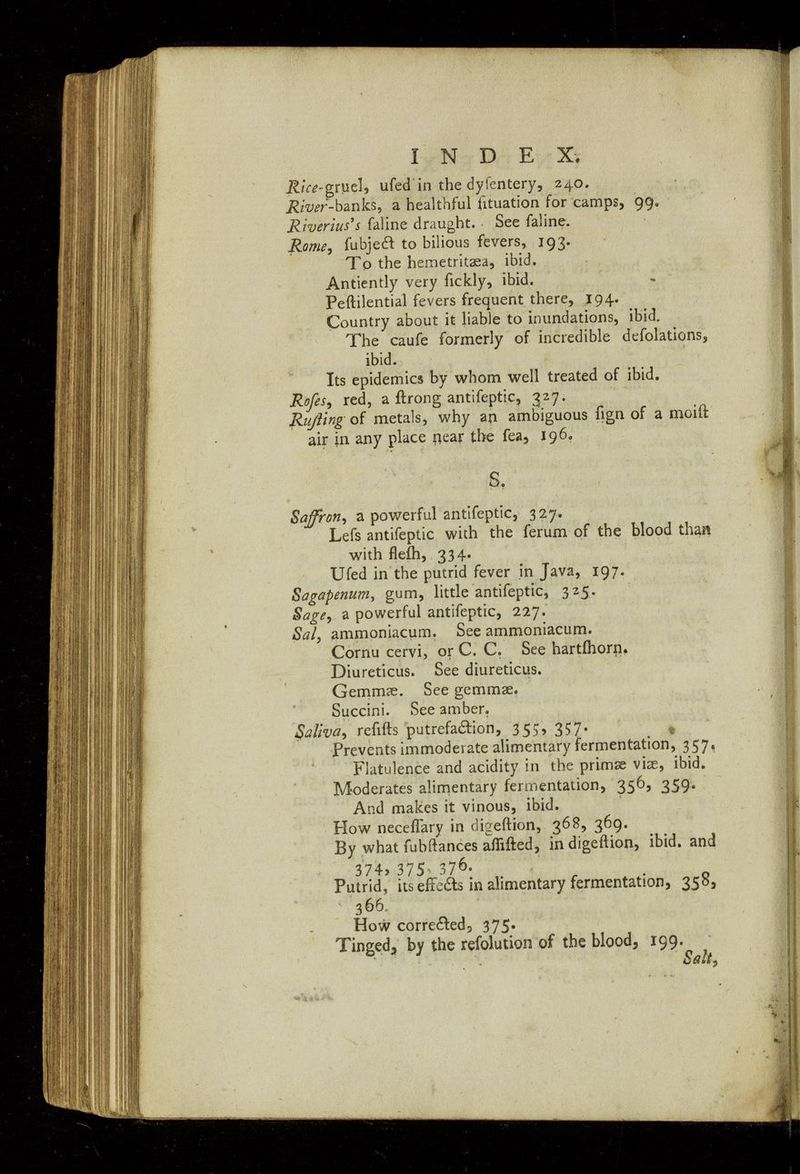 I N D E X.
Rice-gruel, uſed in the dyſentery, 240.
River-banks, a healthful ſituation for camps, 99.
Riverius's ſaline draught. See ſaline.
Rome, ſubject to bilious fevers, 193.
To the hemetritæa, ibid.
Antiently very ſickly, ibid.
Peſtilential fevers frequent there, 194.
Country about it liable to inundations, ibid.
The cauſe formerly of incredible deſolations,
ibid.
Its epidemics by whom well treated of ibid.
Roſes, red, a ſtrong antiſeptic, 327.
Ruſting of metals, why an ambiguous ſign of a moiſt
air in any place near the ſea, 196.
S.
Saffron, a powerful antiſeptic, 327.
Leſs antiſeptic with the ſerum of the blood than
with fleſh, 334.
Uſed in the putrid fever in Java, 197.
Sagapenum, gum, little antiſeptic, 325.
Sage, a powerful antiſeptic, 227.
Sal, ammoniacum. See ammoniacum.
Cornu cervi, or C. C. See hartſhorn.
Diureticus. See diureticus.
Gemmæ. See gemmæ.
Succini. See amber.
Saliva, reſiſts putrefaction, 355, 357.
Prevents immoderate alimentary fermentation, 357.
Flatulence and acidity in the primæ viæ, ibid.
Moderates alimentary fermentation, 356, 359.
And makes it vinous, ibid.
How neceſſary in digeſtion, 368, 369.
By what ſubſtances aſſiſted, in digeſtion, ibid. and
374, 375, 376.
Putrid, its effects in alimentary fermentation, 358,
366.
How corrected, 375.
Tinged, by the reſolution of the blood, 199.
Salt,